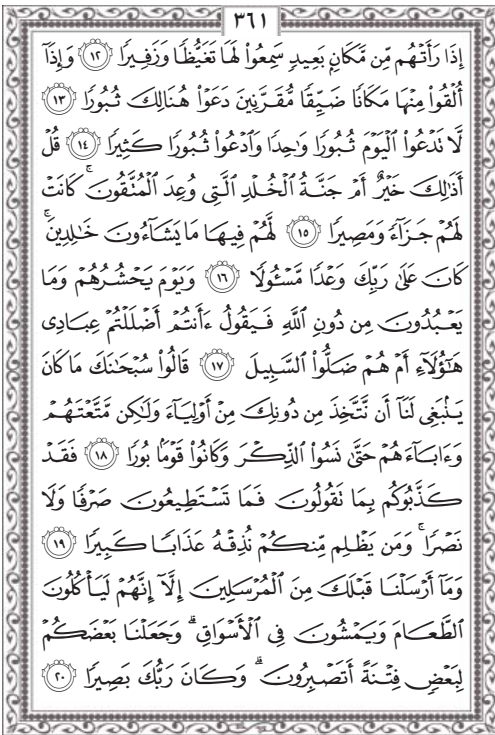 ٣٦١
إِذَا رَأَتْهُم مِّن مَّكَانِۭ بَعِيدٖ سَمِعُواْ لَهَا تَغَيُّظٗا وَزَفِيرٗا ١٢ وَإِذَآ
أُلۡقُواْ مِنۡهَا مَكَانٗا ضَيِّقٗا مُّقَرَّنِينَ دَعَوۡاْ هُنَالِكَ ثُبُورٗا ١٣
لَّا تَدۡعُواْ ٱلۡيَوۡمَ ثُبُورٗا وَٰحِدٗا وَٱدۡعُواْ ثُبُورٗا كَثِيرٗا ١٤ قُلۡ
أَذَٰلِكَ خَيۡرٌ أَمۡ جَنَّةُ ٱلۡخُلۡدِ ٱلَّتِي وُعِدَ ٱلۡمُتَّقُونَۚ كَانَتۡ
لَهُمۡ جَزَآءٗ وَمَصِيرٗا ١٥ لَّهُمۡ فِيهَا مَا يَشَآءُونَ خَٰلِدِينَۚ
كَانَ عَلَىٰ رَبِّكَ وَعۡدٗا مَّسۡـُٔولٗا ١٦ وَيَوۡمَ يَحۡشُرُهُمۡ وَمَا
يَعۡبُدُونَ مِن دُونِ ٱللَّهِ فَيَقُولُ ءَأَنتُمۡ أَضۡلَلۡتُمۡ عِبَادِي
هَٰٓؤُلَآءِ أَمۡ هُمۡ ضَلُّواْ ٱلسَّبِيلَ ١٧ قَالُواْ سُبۡحَٰنَكَ مَا كَانَ
يَنۢبَغِي لَنَآ أَن نَّتَّخِذَ مِن دُونِكَ مِنۡ أَوۡلِيَآءَ وَلَٰكِن مَّتَّعۡتَهُمۡ
وَءَابَآءَهُمۡ حَتَّىٰ نَسُواْ ٱلذِّكۡرَ وَكَانُواْ قَوۡمَۢا بُورٗا ١٨ فَقَدۡ
كَذَّبُوكُم بِمَا تَقُولُونَ فَمَا تَسۡتَطِيعُونَ صَرۡفٗا وَلَا
نَصۡرٗاۚ وَمَن يَظۡلِم مِّنكُمۡ نُذِقۡهُ عَذَابٗا كَبِيرٗا ١٩
وَمَآ أَرۡسَلۡنَا قَبۡلَكَ مِنَ ٱلۡمُرۡسَلِينَ إِلَّآ إِنَّهُمۡ لَيَأۡكُلُونَ
ٱلطَّعَامَ وَيَمۡشُونَ فِي ٱلۡأَسۡوَاقِۗ وَجَعَلۡنَا بَعۡضَكُمۡ
لِبَعۡضٖ فِتۡنَةً أَتَصۡبِرُونَۗ وَكَانَ رَبُّكَ بَصِيرٗا ٢٠